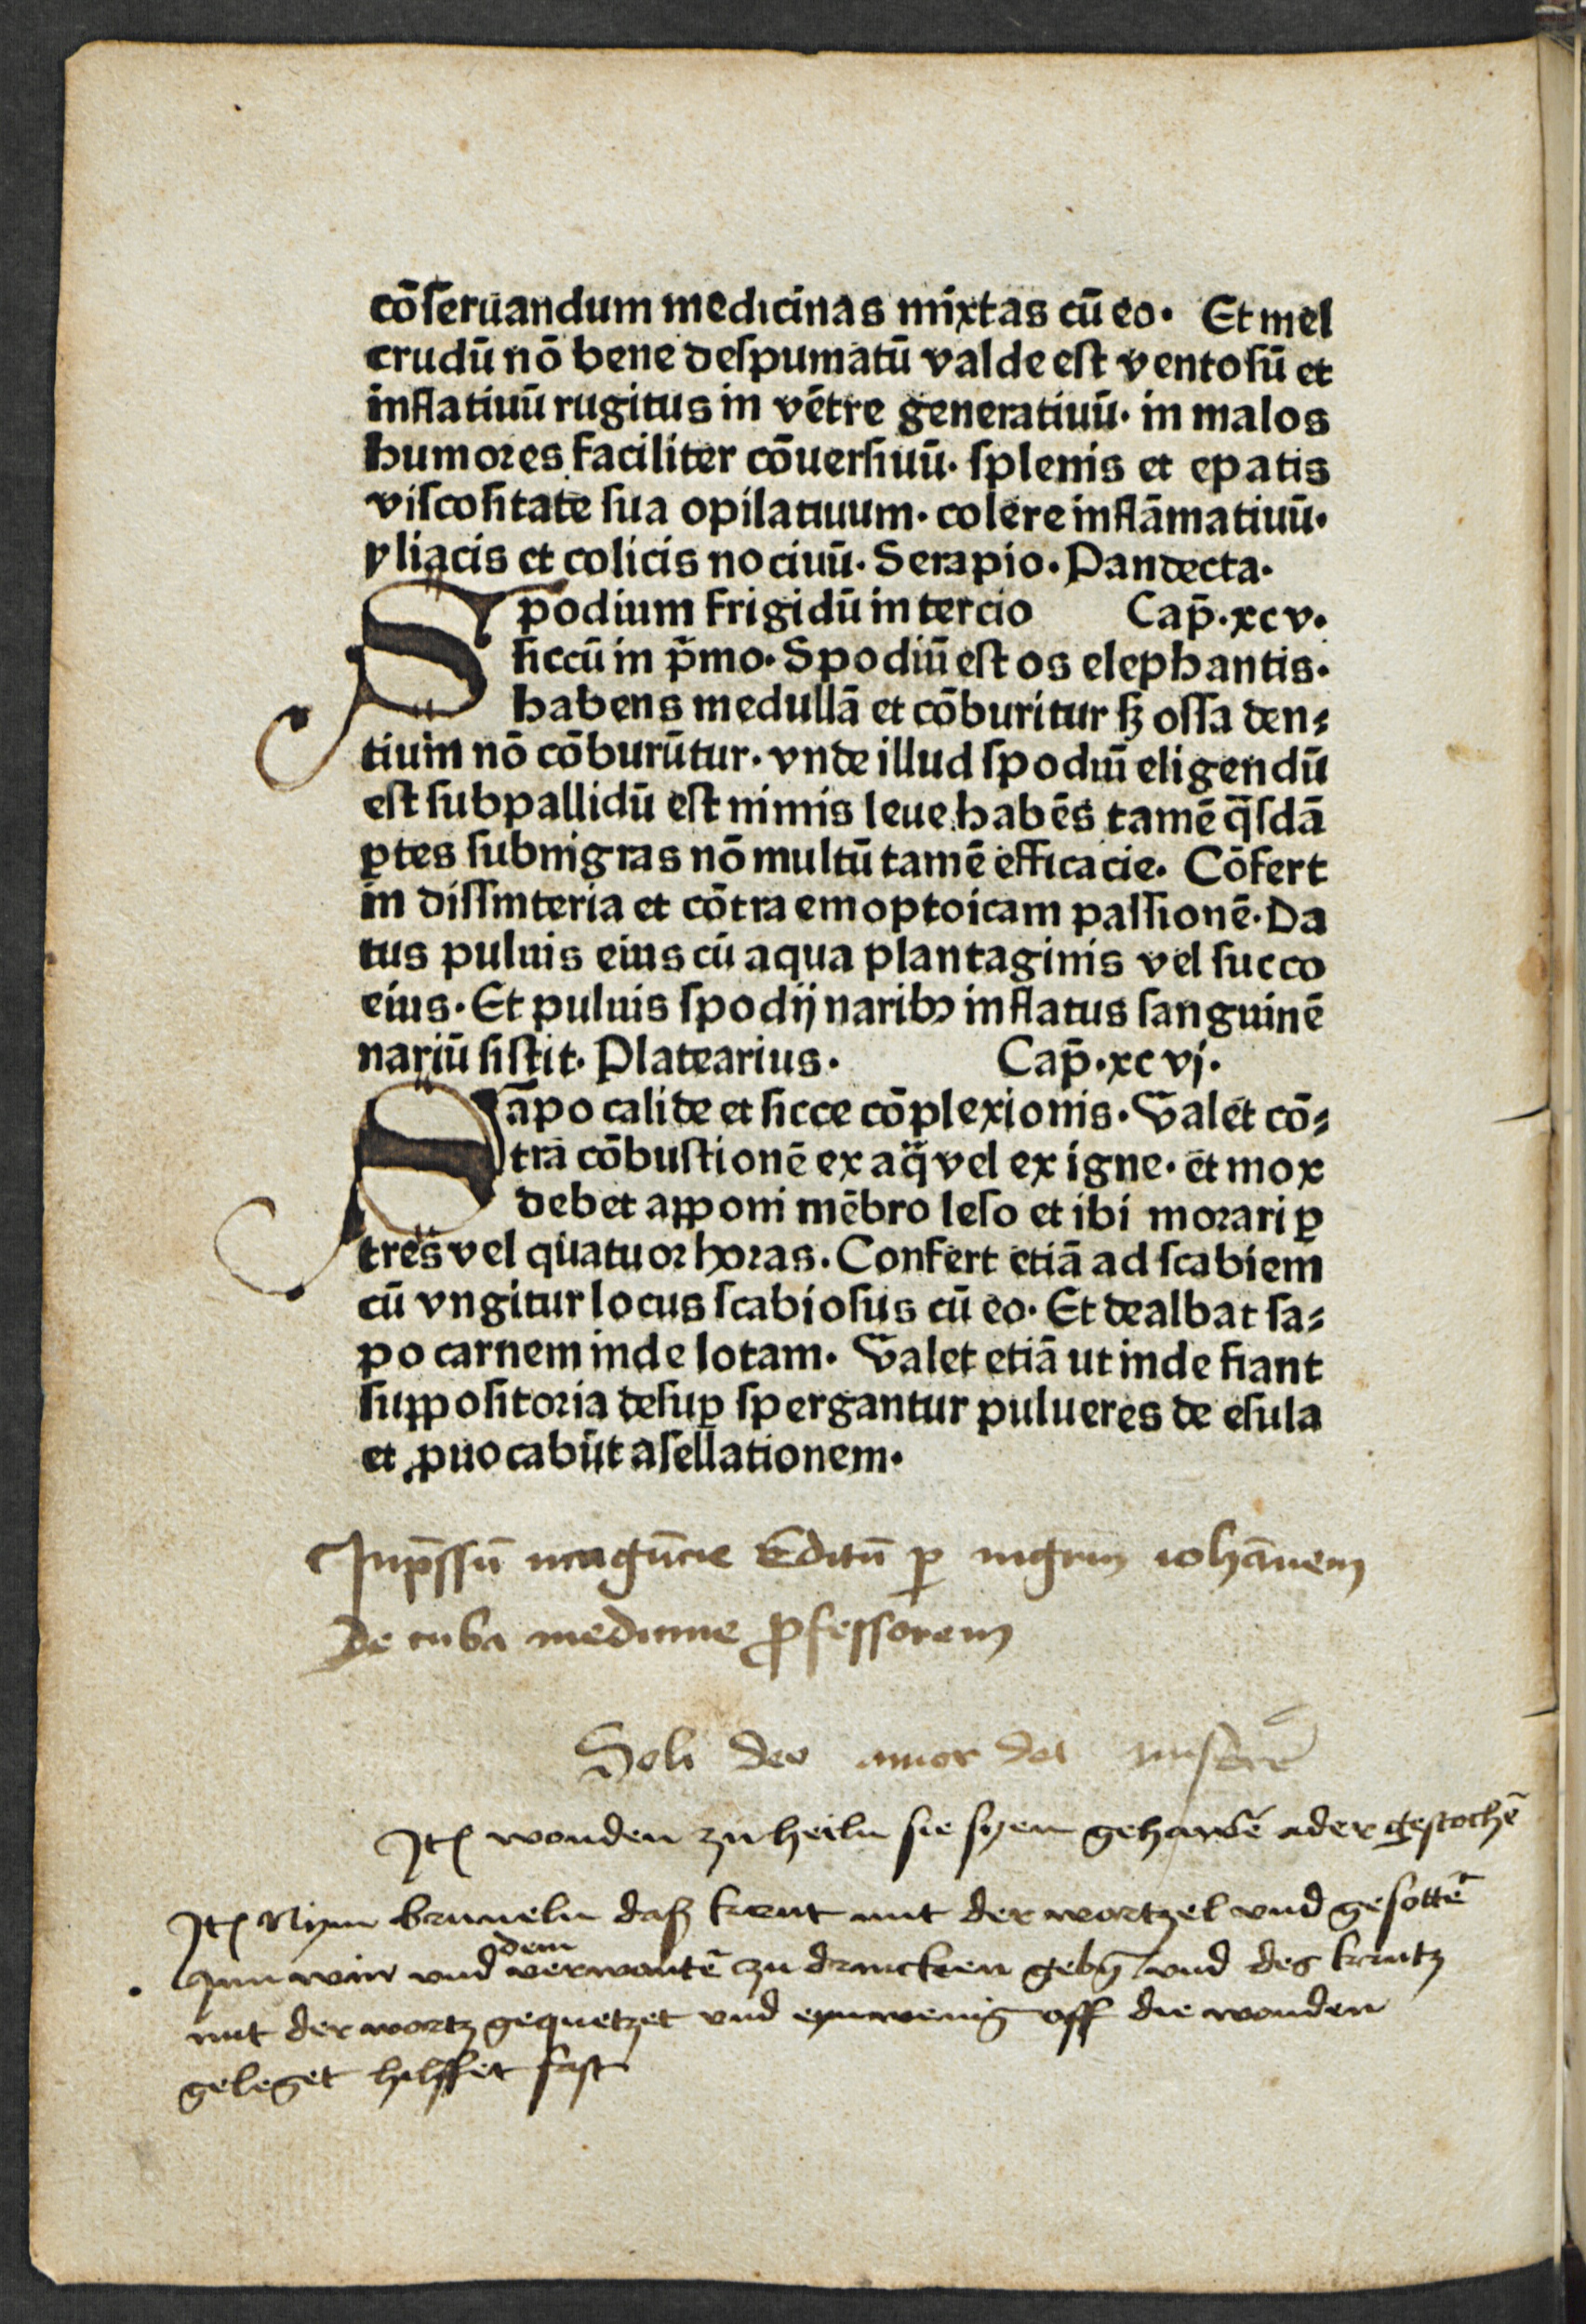 cōſeruandum medicinas mixtas cū eo. Et mel
crudū nō bene deſpumatū valde eſt ventoſū et
inflatiuū rugitus in vētre generatiuū. in malos
humores faciliter cōuerſiuū. ſplenis et epatis
viſcoſitate ſua opilatiuum. colere inflāmatiuū.
yliacis et colicis nociuū. Serapio. Pandecta.
Spodium frigidū in tercio Cap̄. xcv.
ſiccū in p̄mo. Spodiū eſt os elephantis.
habens medullā et cōburitur ſꝫ oſſa den⸗
tium nō cōburūtur. vnde illud ſpodiū eligendū
eſt ſubpallidū eſt nimis leue habēs tamē q̄ſdā
ꝑtes ſubnigras nō multū tamē efficacie. Cōfert
in diſſinteria et cōtra emoptoicam paſſionē. Da
tus puluis eius cū aqua plantaginis vel ſucco
eius. Et puluis ſpodij naribꝫ inflatus ſanguinē
nariū ſiſtit. Platearius. Cap̄. xcvj.
Sāpo calide et ſicce cōplexionis. Valet cō⸗
tra cōbuſtionē ex aq̄ vel ex igne. et mox
debet apponi mēbro leſo et ibi morari ꝑ
tres vel quatuor horas. Confert etiā ad ſcabiem
cū vngitur locus ſcabioſus cū eo. Et dealbat ſa⸗
po carnem inde lotam. Valet etiā ut inde fiant
ſuppoſitoria deſuꝑ ſpergantur pulueres de eſula
et ꝓuocabūt aſellationem.
Inp̄ſſū magūcie Editū ꝑ mgrm iohānem
De cuba medicine ꝓfeſſorem
Soli deo amor dei
Itē wonden zu heiln ſie ſyen gehawē ader geſtochē
Itē Nym bruneln daß krut mit der wortzel vnd geſottē
Inn win vnd dem verwontē zu drincken gebē vnd des krutz
mit der wortz gequetzet vnd eyn wenig off die wonden
geleget hilffet faſt